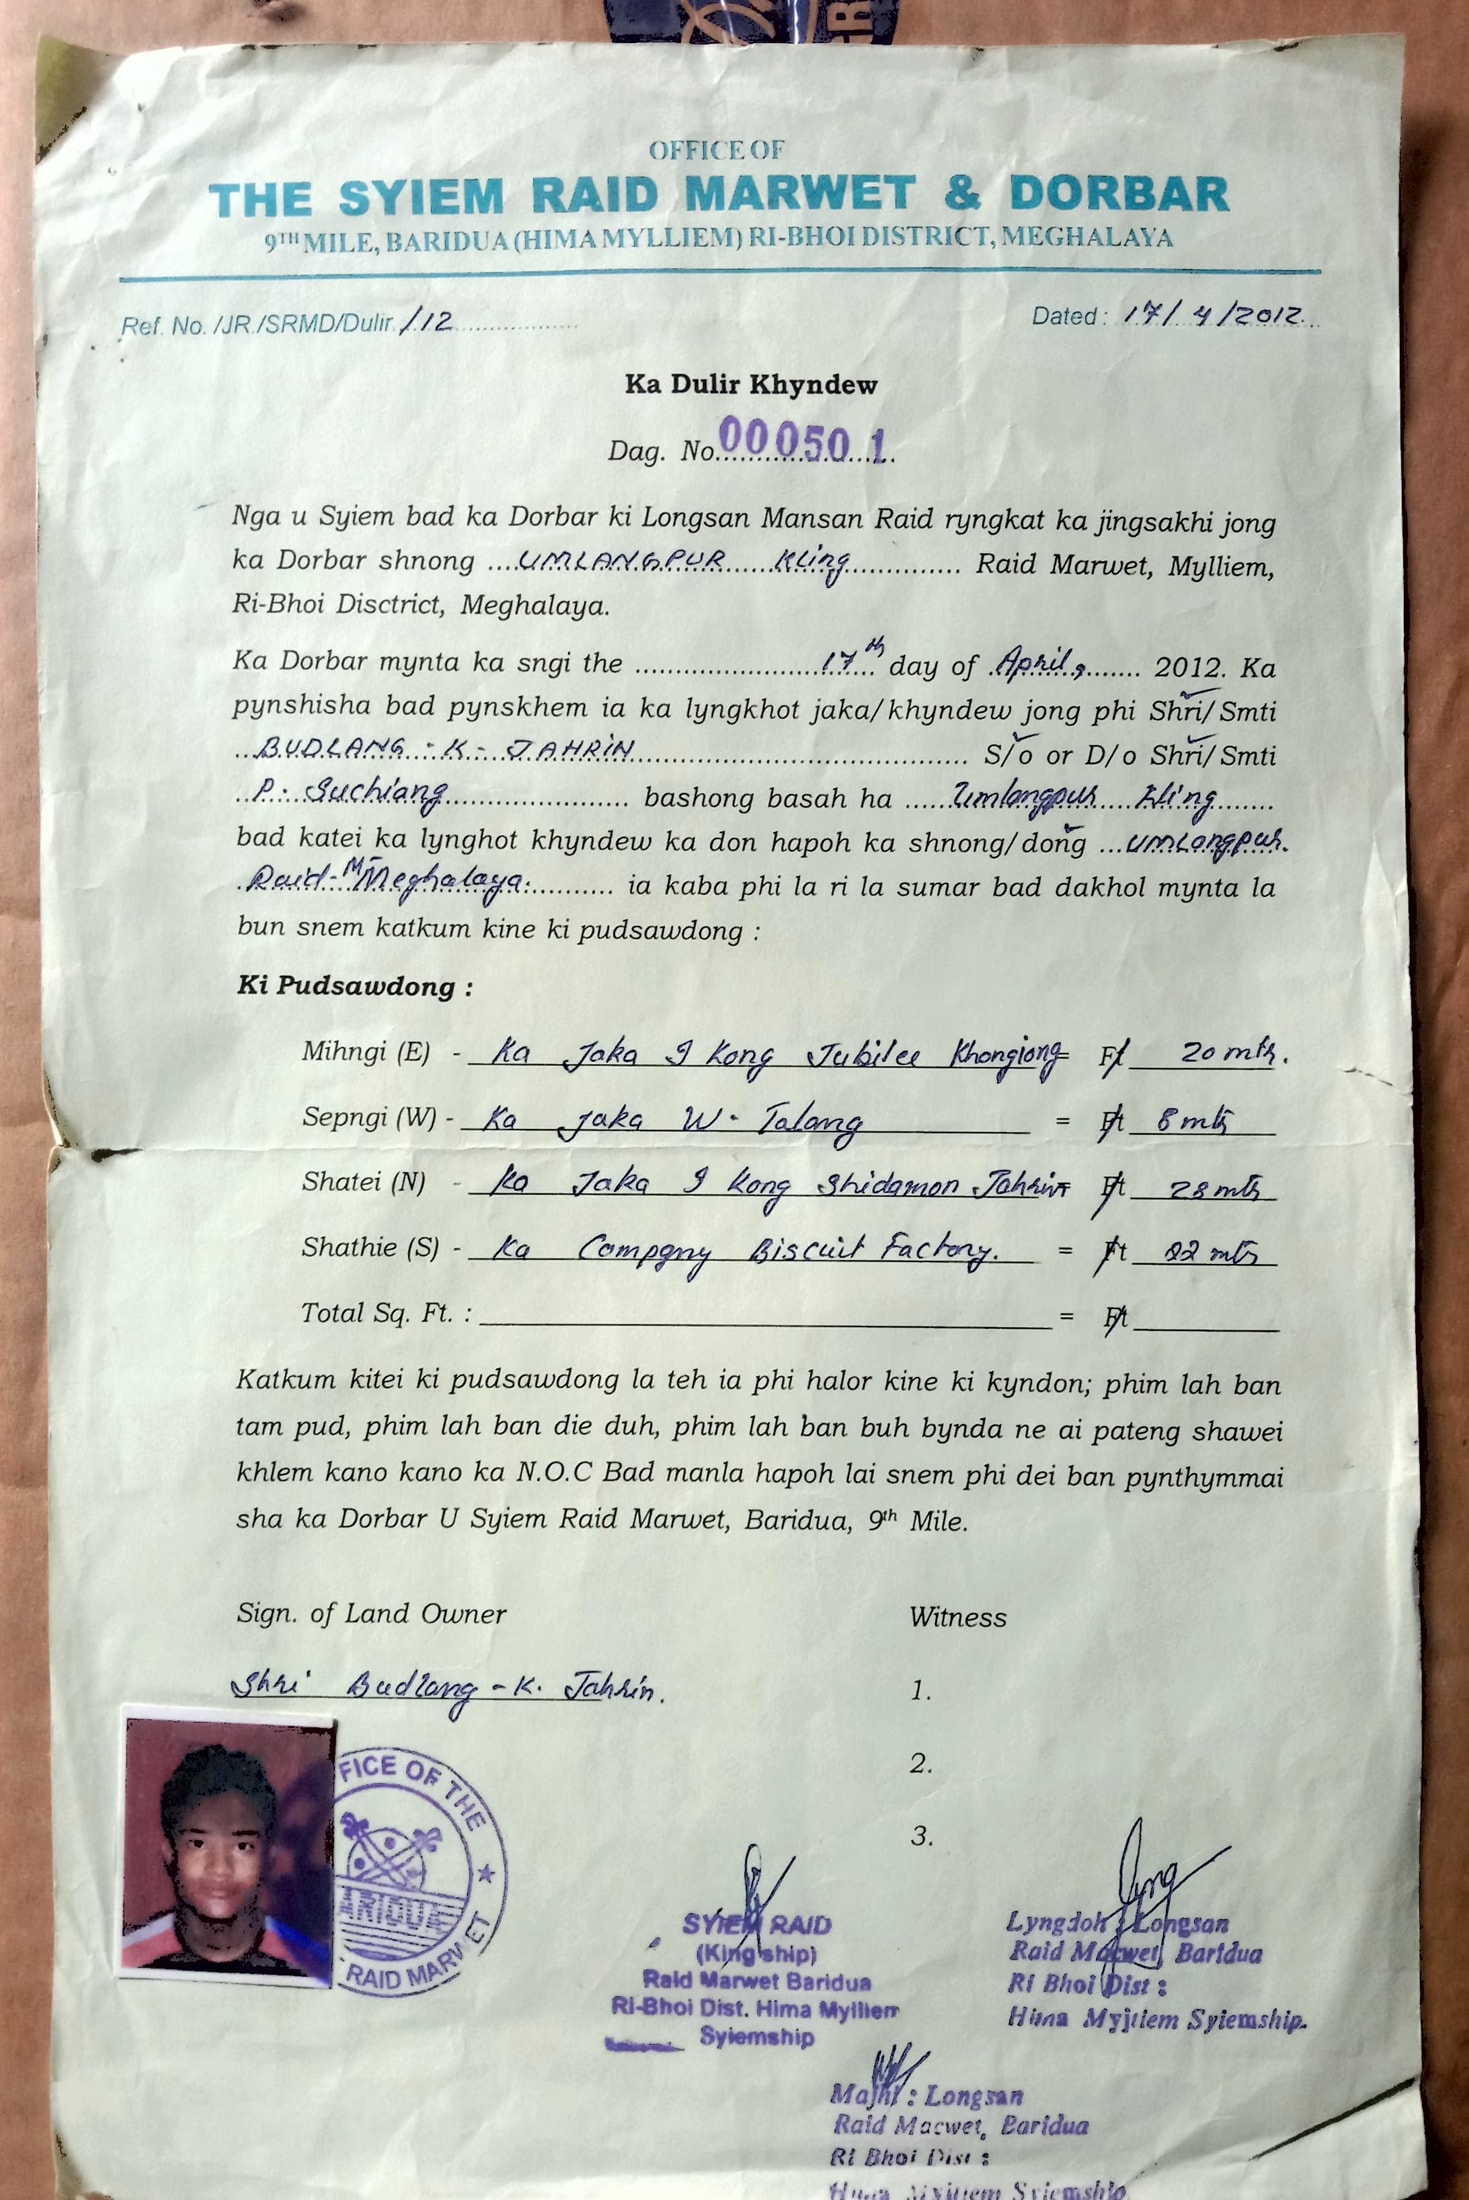 OFFICE OF
THE SYIEM RAID MARWET & DORBAR
9TH MILE, BARIDUA (HIMA MYLLIEM) RI-BHOI DISTRICT, MEGHALAYA
Ref. No. /JR./SRMD/Dulir /12 Dated : 17/4/2012
Ka Dulir Khyndew
Dag. No. 000501
Nga u Syiem bad ka Dorbar ki Longsan Mansan Raid ryngkat ka jingsakhi jong
ka Dorbar shnong UMLANGPUR Kling Raid Marwet, Mylliem,
Ri-Bhoi Disctrict, Meghalaya.
Ka Dorbar mynta ka sngi the 17th day of April, 2012. Ka
pynshisha bad pynskhem ia ka lyngkhot jaka/khyndew jong phi Shri/Smti
BUDLANG - K - JAHRIN S/o or D/o Shri/Smti
P. Suchiang bashong basah ha Umlangpur Kling
bad katei ka lynghot khyndew ka don hapoh ka shnong/dong UMLangpur.
Raid-M-Meghalaya. ia kaba phi la ri la sumar bad dakhol mynta la
bun snem katkum kine ki pudsawdong :
Ki Pudsawdong :
Mihngi (E) - Ka Jaka I Kong Jubilee Khongjong = Ft 20 mtr.
Sepngi (W) - Ka Jaka W. Talang = Ft 8 mtr
Shatei (N) - Ka Jaka I Kong Shidamon Jahrin = Ft 28 mtr
Shathie (S) - Ka Compgny Biscuit Factory. = Ft 22 mtr
Total Sq. Ft. : = Ft
Katkum kitei ki pudsawdong la teh ia phi halor kine ki kyndon; phim lah ban
tam pud, phim lah ban die duh, phim lah ban buh bynda ne ai pateng shawei
khlem kano kano ka N.O.C Bad manla hapoh lai snem phi dei ban pynthymmai
sha ka Dorbar U Syiem Raid Marwet, Baridua, 9th Mile.
Sign. of Land Owner Witness
Shri Budlang - K. Jahrin. 1.
2.
3.
FICE OF THE
ARIDUA
RAID MARWET
SYIEM RAID
(King ship)
Raid Marwet Baridua
Ri-Bhoi Dist. Hima Mylliem
Syiemship
Lyngdoh : Longsan
Raid Marwet, Baridua
Ri Bhoi Dist :
Hima Myjtiem Syiemship.
Majhi : Longsan
Raid Macwet, Baridua
Ri Bhoi Dist :
Hima Myjtiem Syiemship